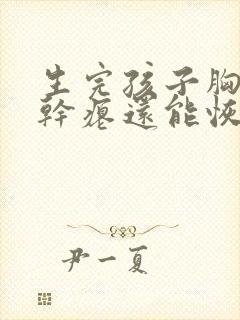 生完孩子胸
幹瘪還能恢
尹一夏